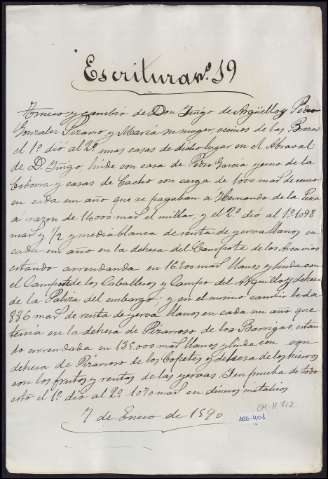 Escritura nº. 19
Trueco y cambio de Don Iñigo de Argüello y Pedro
Gonzalez Serano y Maria su muger vecinos de las Brozas
el 1º dió al 2º unas casas de dicho lugar en el Arraval
de D. Iñigo, linde con casa de Pero Garcia yerno de la
y casas de con carga de 1000 mal de censo
en cada un año que se pagaban a Hernando de la Peña
a razon de 14000 mal el millar, y el 2º dió al 1º 1098
mal y 1/2 y media blanca de renta de yerva llanos en
cada un año en la dehesa del de los
estando arrendanda en 16500 mal llanos y linda con
el de los Caballeros y Campo del y dehesa
de la del embargo; y en el mismo cambio le da
886 mal de renta de yerva llanos en cada un año que
tenia en la dehesa de de los Barrigas están
do arrendada en 135000 mal llanos y linda con
dehesa de de los y dehesa de los
con los frutos y rentas de las yervas. Don de todo
esto el 1º dió al 2º 1070 mal en dineros metalicos
7 de Enero de 1590